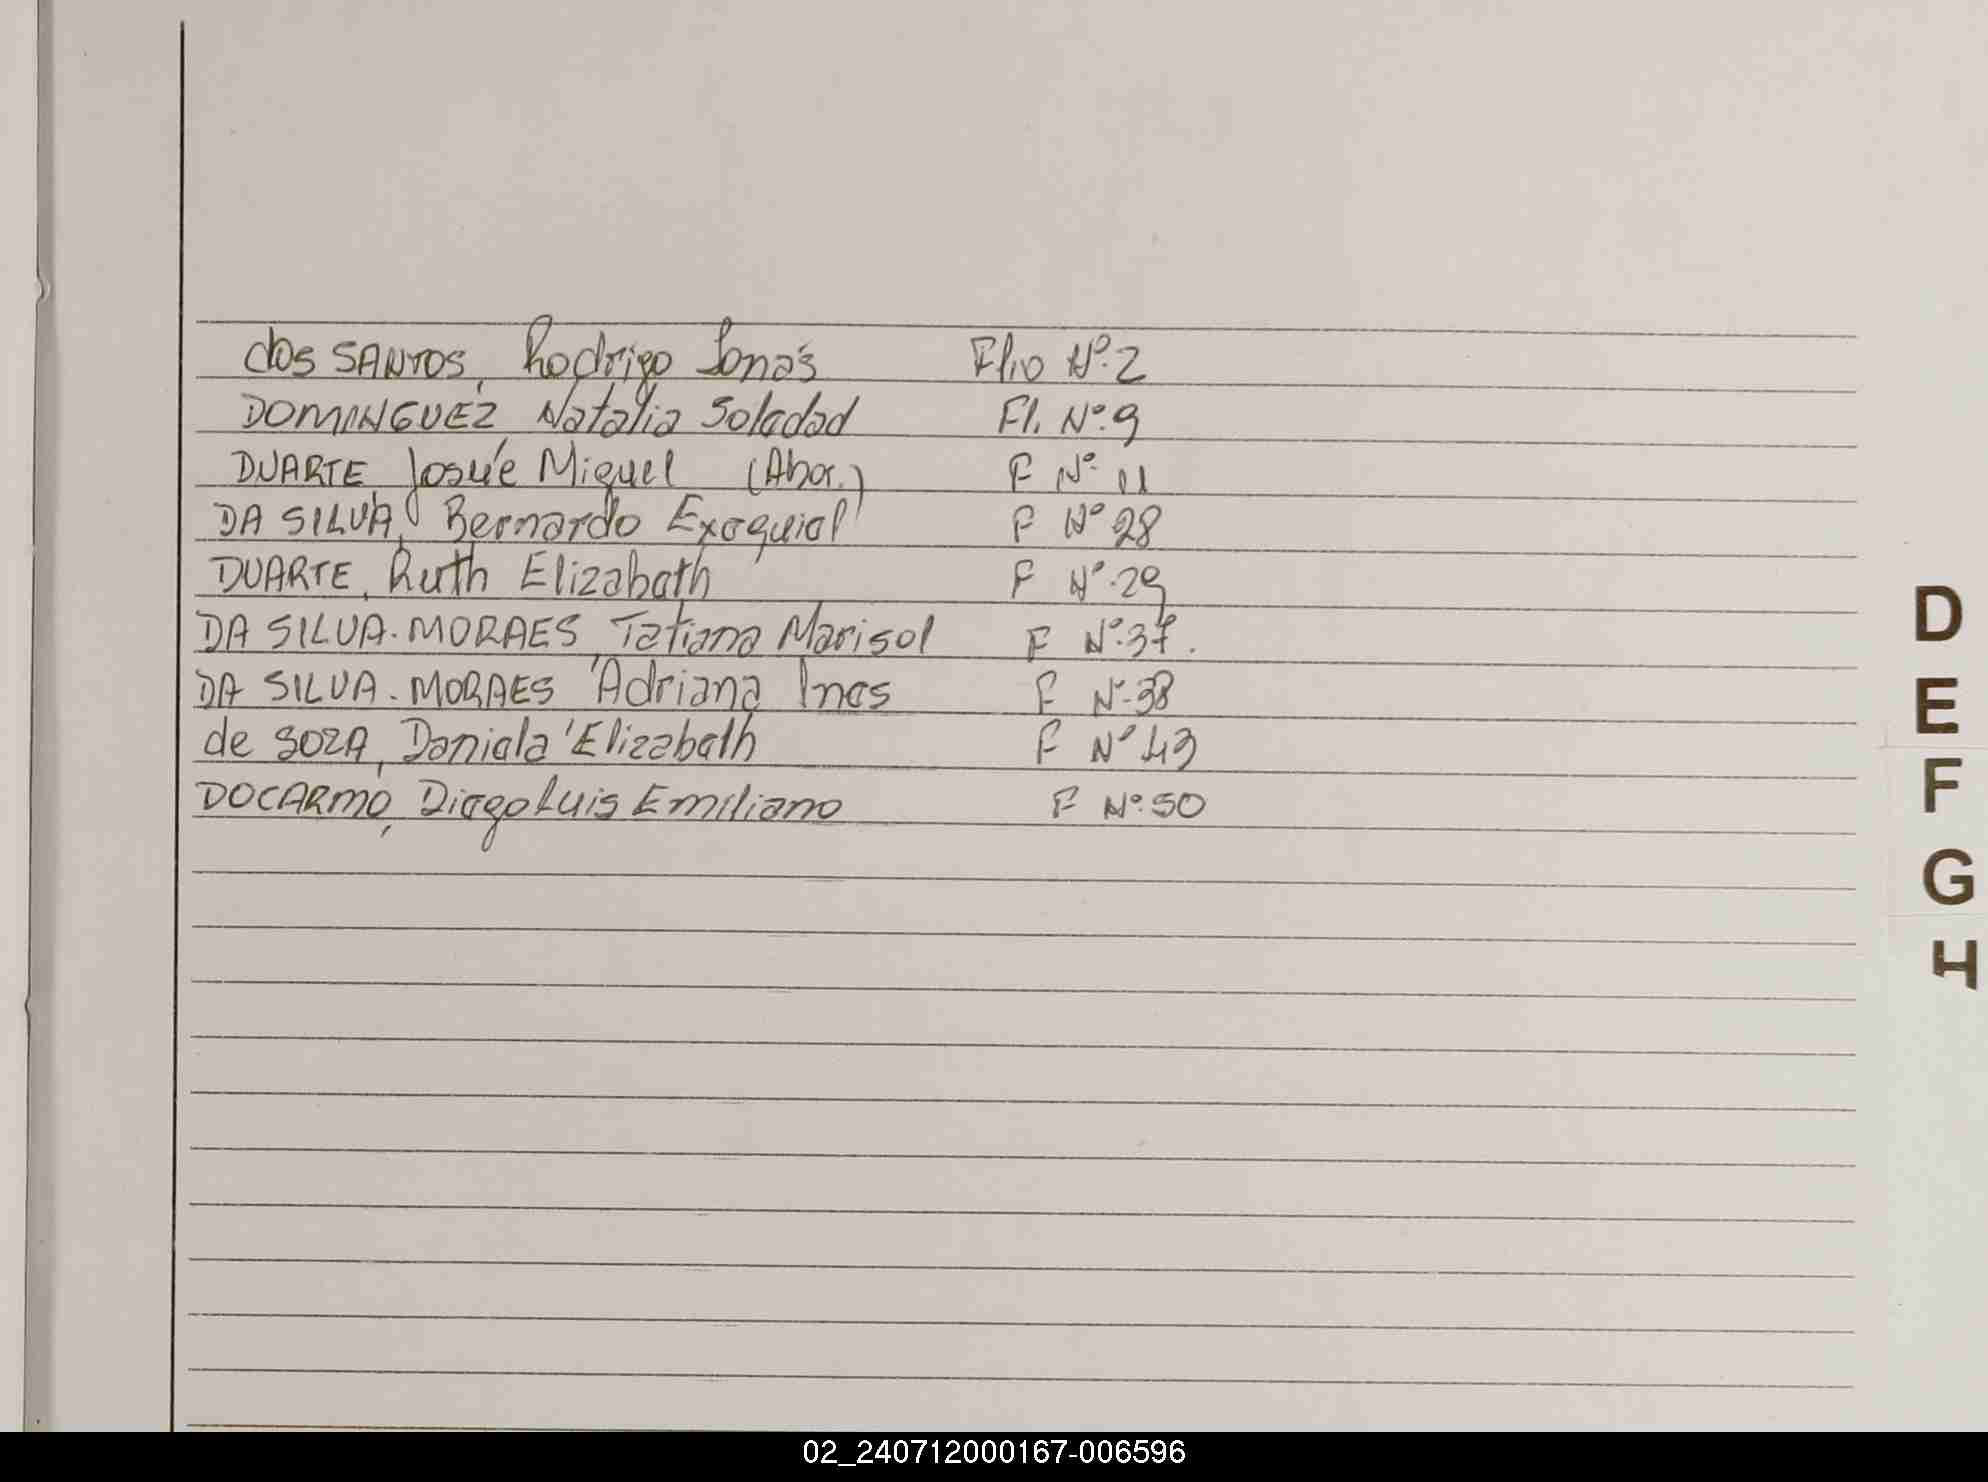 dos SANTOS, Rodrigo Jonás Flio Nº.2
DOMINGUEZ, Natalia Soledad Fl. Nº.9
DUARTE Josué Miguel (Abor.) F Nº 11
DA SILVA, Bernardo Exequiel F Nº 28
DUARTE, Ruth Elizabeth F Nº.29
DA SILVA-MORAES, Tatiana Marisol F Nº.37.
DA SILVA-MORAES Adriana Ines F Nº.38
de SOZA, Daniela Elizabeth F Nº 43
DOCARMO, Diego Luis Emiliano F Nº.50
D
E
F
G
H
02_240712000167-006596